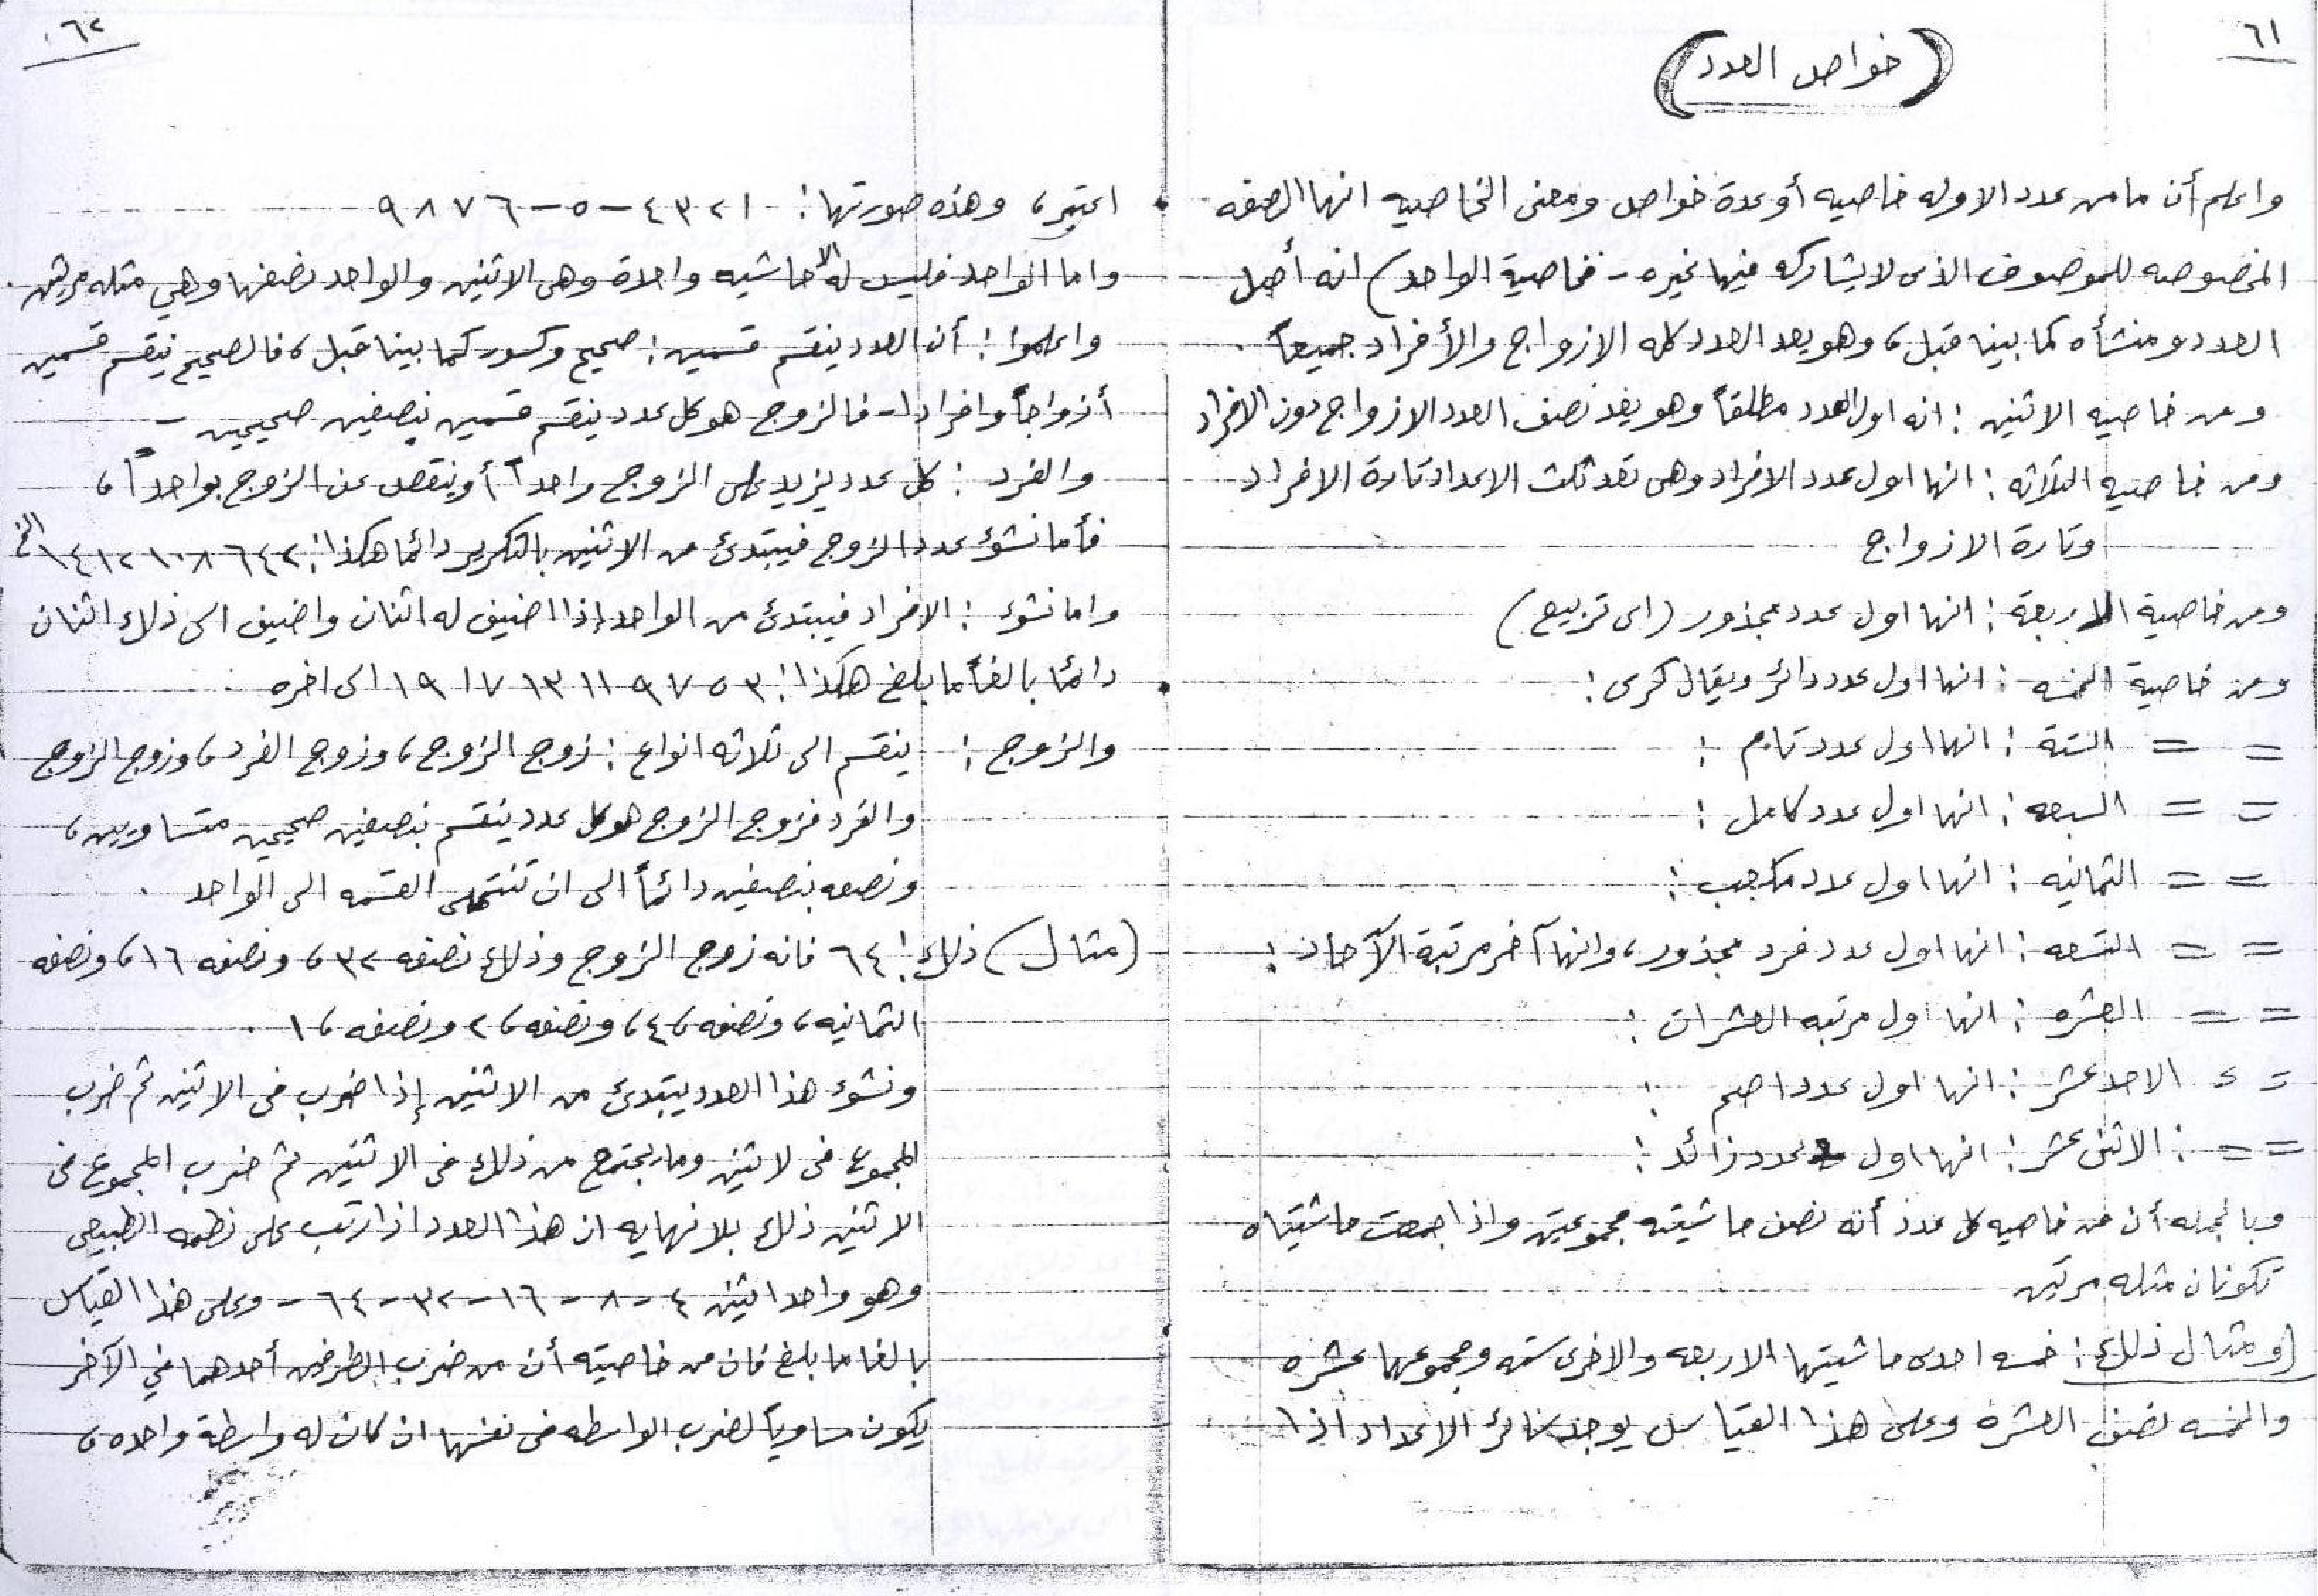 ٦١
(خواص العدد)
واعلم أن ما من عدد الا وله خاصيه أو عدة خواص ومعنى الخاصيه انها الصفه
المخصوصه للموصوف الذى لا يشاركه فيها غيره - فخاصية الواحد) انه أصل
العدد ومنشأه كما بينا قبل، وهو يعد العدد كله الازواج والأفراد جميعاً.
ومن خاصيه الاثنين: انه اول العدد مطلقاً وهو يعد نصف العدد الازواج دون الافراد
ومن خاصيه الثلاثه: انها اول عدد الافراد وهى تعد ثلث الاعداد تارة الافراد
وتارة الازواج
ومن خاصية الاربعة: انها اول عدد مجذور (اى تربيع)
ومن خاصية الخمسه: انها اول عدد دائر ويقال كرى:
= = الستة: انها اول عدد تام:
= = السبعه: انها اول عدد كامل:
= = الثمانيه: انها اول عدد مكعب:
= = التسعه: انها اول عدد فرد مجذور، وانها آخر مرتبة الآحاد:
= = العشره: انها اول مرتبه العشرات:
= = الاحد عشر: انها اول عدد اصم:
= =: الاثنى عشر: انها اول عدد زائد:
وبالجمله أن من خاصيه كل عدد أنه نصف حاشيته مجموعتين واذا جمعت حاشيتاه
تكونان مثله مرتين
(ومثال ذلك: خمسه احدى حاشيتها الاربعه والاخرى سته ومجموعهما عشره
والخمسه نصف العشره وعلى هذا القياس يوجد سائر الاعداد اذا
٦٢
اعتبر، وهذه صورتها: ١ ٢ ٣ ٤ - ٥ - ٦ ٧ ٨ ٩
واما الواحد فليس له الا حاشيه واحدة وهى الاثنين والواحد نصفها وهي مثله مرتين.
واعلموا: أن العدد ينقسم قسمين: صحيح وكسور كما بينا قبل، فالصحيح ينقسم قسمين
أزواجاً وافرادا - فالزوج هو كل عدد ينقسم قسمين بنصفين صحيحين -
والفرد: كل عدد يزيد على الزوج واحداً أو ينقص عن الزوج بواحداً،
فأما نشوء عدد الزوج فيبتدئ من الاثنين بالتكرير دائما هكذا: ٢ ٤ ٦ ٨ ١٠ ١٢ ١٤ الخ
واما نشوء: الافراد فيبتدئ من الواحد إذا اضيف له اثنان واضيف الى ذلك اثنان
دائما بالغاً ما بلغ هكذا: ٣ ٥ ٧ ٩ ١١ ١٣ ١٧ ١٩ الى اخره
والزوج: ينقسم الى ثلاثه انواع: زوج الزوج، وزوج الفرد، وزوج الزوج
والفرد فزوج الزوج هو كل عدد ينقسم بنصفين صحيحين متساويين،
ونصعه بنصفين دائماً الى ان تنتهى القسمه الى الواحد.
(مثال) ذلك: ٦٤ فانه زوج الزوج وذلك نصفه ٣٢، ونصفه ١٦، ونصفه
الثمانيه، ونصفه ،٤، ونصفه ،٢ ونصفه ،١.
ونشوء هذا العدد يبتدئ من الاثنين إذا ضرب فى الاثنين ثم ضرب
المجموع فى لاثنين وما يجتمع من ذلك فى الاثنين ثم ضرب المجموع فى
الاثنين ذلك بلا نهايه ان هذا العدد اذا رتب على نظمه الطبيعى
وهو واحد اثنين ٤ - ٨ - ١٦ - ٣٢ - ٦٤ - وعلى هذا القياس
بالغا ما بلغ فان من خاصيته أن من ضرب الطرفين أحدهما في الآخر
يكون مساوياً لضرب الواسطه فى نفسها ان كان له واسطة واحده،